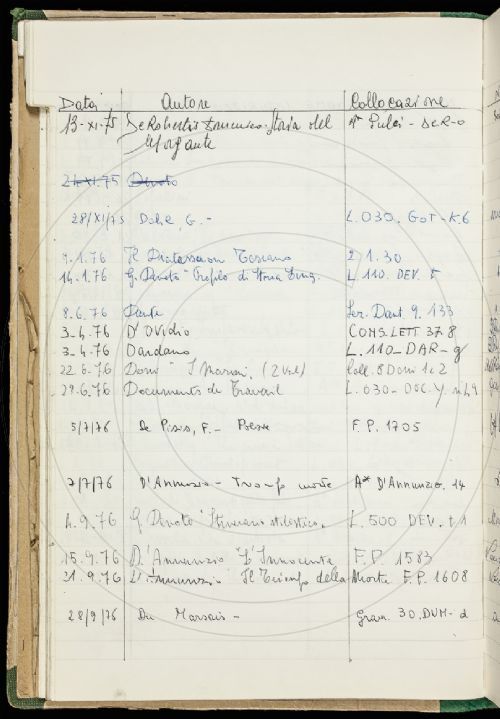 Data Autore Collocazione
13-XI-75 De Robertis Domenico Storia del A* Pulci - DER-0
Morgante
24 XI.75 Devoto
28/XI/75 G. - L.030. GOT-K.6
9.1.76 Il Diatessaron Toscano 2 1.30
14.1.76 G. Devoto "Profilo di storia ling. L 110. DEV. 5
8.6.76 Dante Ser. Dant. 9. 133
3-4.76 D'Ovidio CONS.LETT 37.8
3-4.76 Dardano L.110-DAR-g
22.6.76 Doni "I Marmi, (2 vol) Coll. 8 Doni 1e2
29.6.76 Documents de Travail L.030-DOC.
5/7/76 De Pisis, F. - Poesie F.P. 1705
7/7/76 D'Annunzio - Trionfo morte A* D'Annunzio. 14
4.9.76 G Devoto "Itinerario stilistico. L.500 DEV. + 1
15.9.76 D'Annunzio "L'Innocente F.P. 1583
21.9.76 D'Annunzio" Il Trionfo della Morte F.P. 1608
28/9/76 Du Marsais - Gram. 30.DUM-2